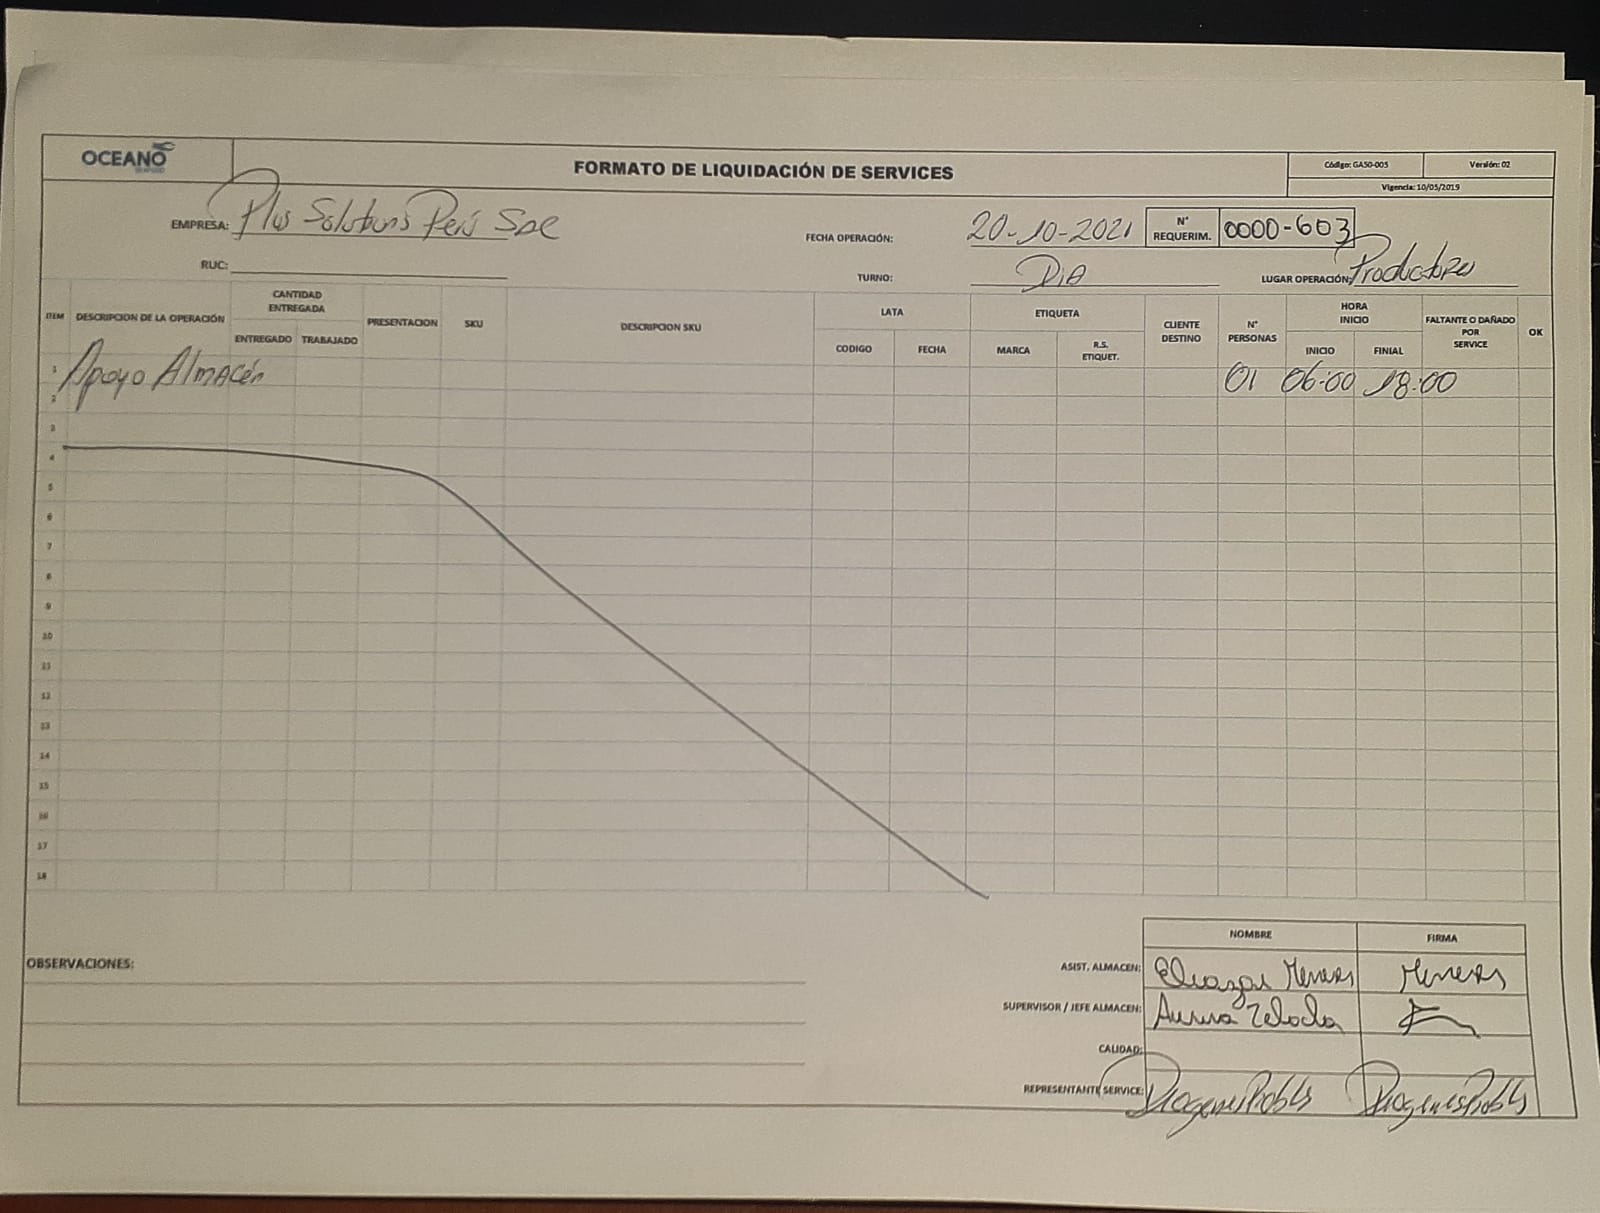 OCEANO
SEAFOOD
FORMATO DE LIQUIDACIÓN DE SERVICES
Código: GA50-005
Versión: 02
Vigencia: 10/05/2019
EMPRESA: Plus Solutions Perú Sac
FECHA OPERACIÓN: 20-10-2021
N° REQUERIM. 0000-603
RUC:
TURNO: DIA
LUGAR OPERACIÓN: Productores
ITEM
DESCRIPCION DE LA OPERACIÓN
CANTIDAD ENTREGADA
ENTREGADO
TRABAJADO
PRESENTACION
SKU
DESCRIPCION SKU
LATA
CODIGO
FECHA
ETIQUETA
MARCA
R.S. ETIQUET.
CLIENTE DESTINO
N° PERSONAS
HORA INICIO
INICIO
FINIAL
FALTANTE O DAÑADO POR SERVICE
OK
1 Apoyo Almacén 01 06:00 18:00
2
3
4
5
6
7
8
9
10
11
12
13
14
15
16
17
18
OBSERVACIONES:
NOMBRE
FIRMA
ASIST. ALMACEN: Eliazar Meneses Meneses
SUPERVISOR / JEFE ALMACEN:
CALIDAD:
REPRESENTANTE SERVICE: Diogenes Robles Diogenes Robles